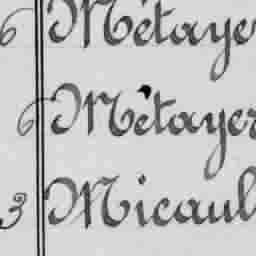 6 Métayer
6 Métayer
3 Micaul